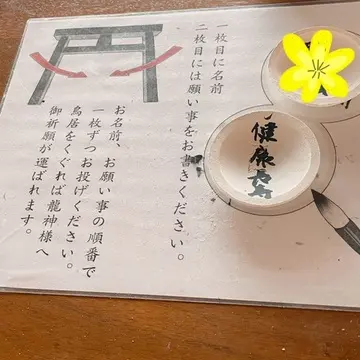 一枚目に名前
二枚目には願い事をお書きください。
お名前、お願い事の順番で
一枚ずつお投げください。
鳥居をくぐれば龍神様へ
御祈願が運ばれます。
健康長寿